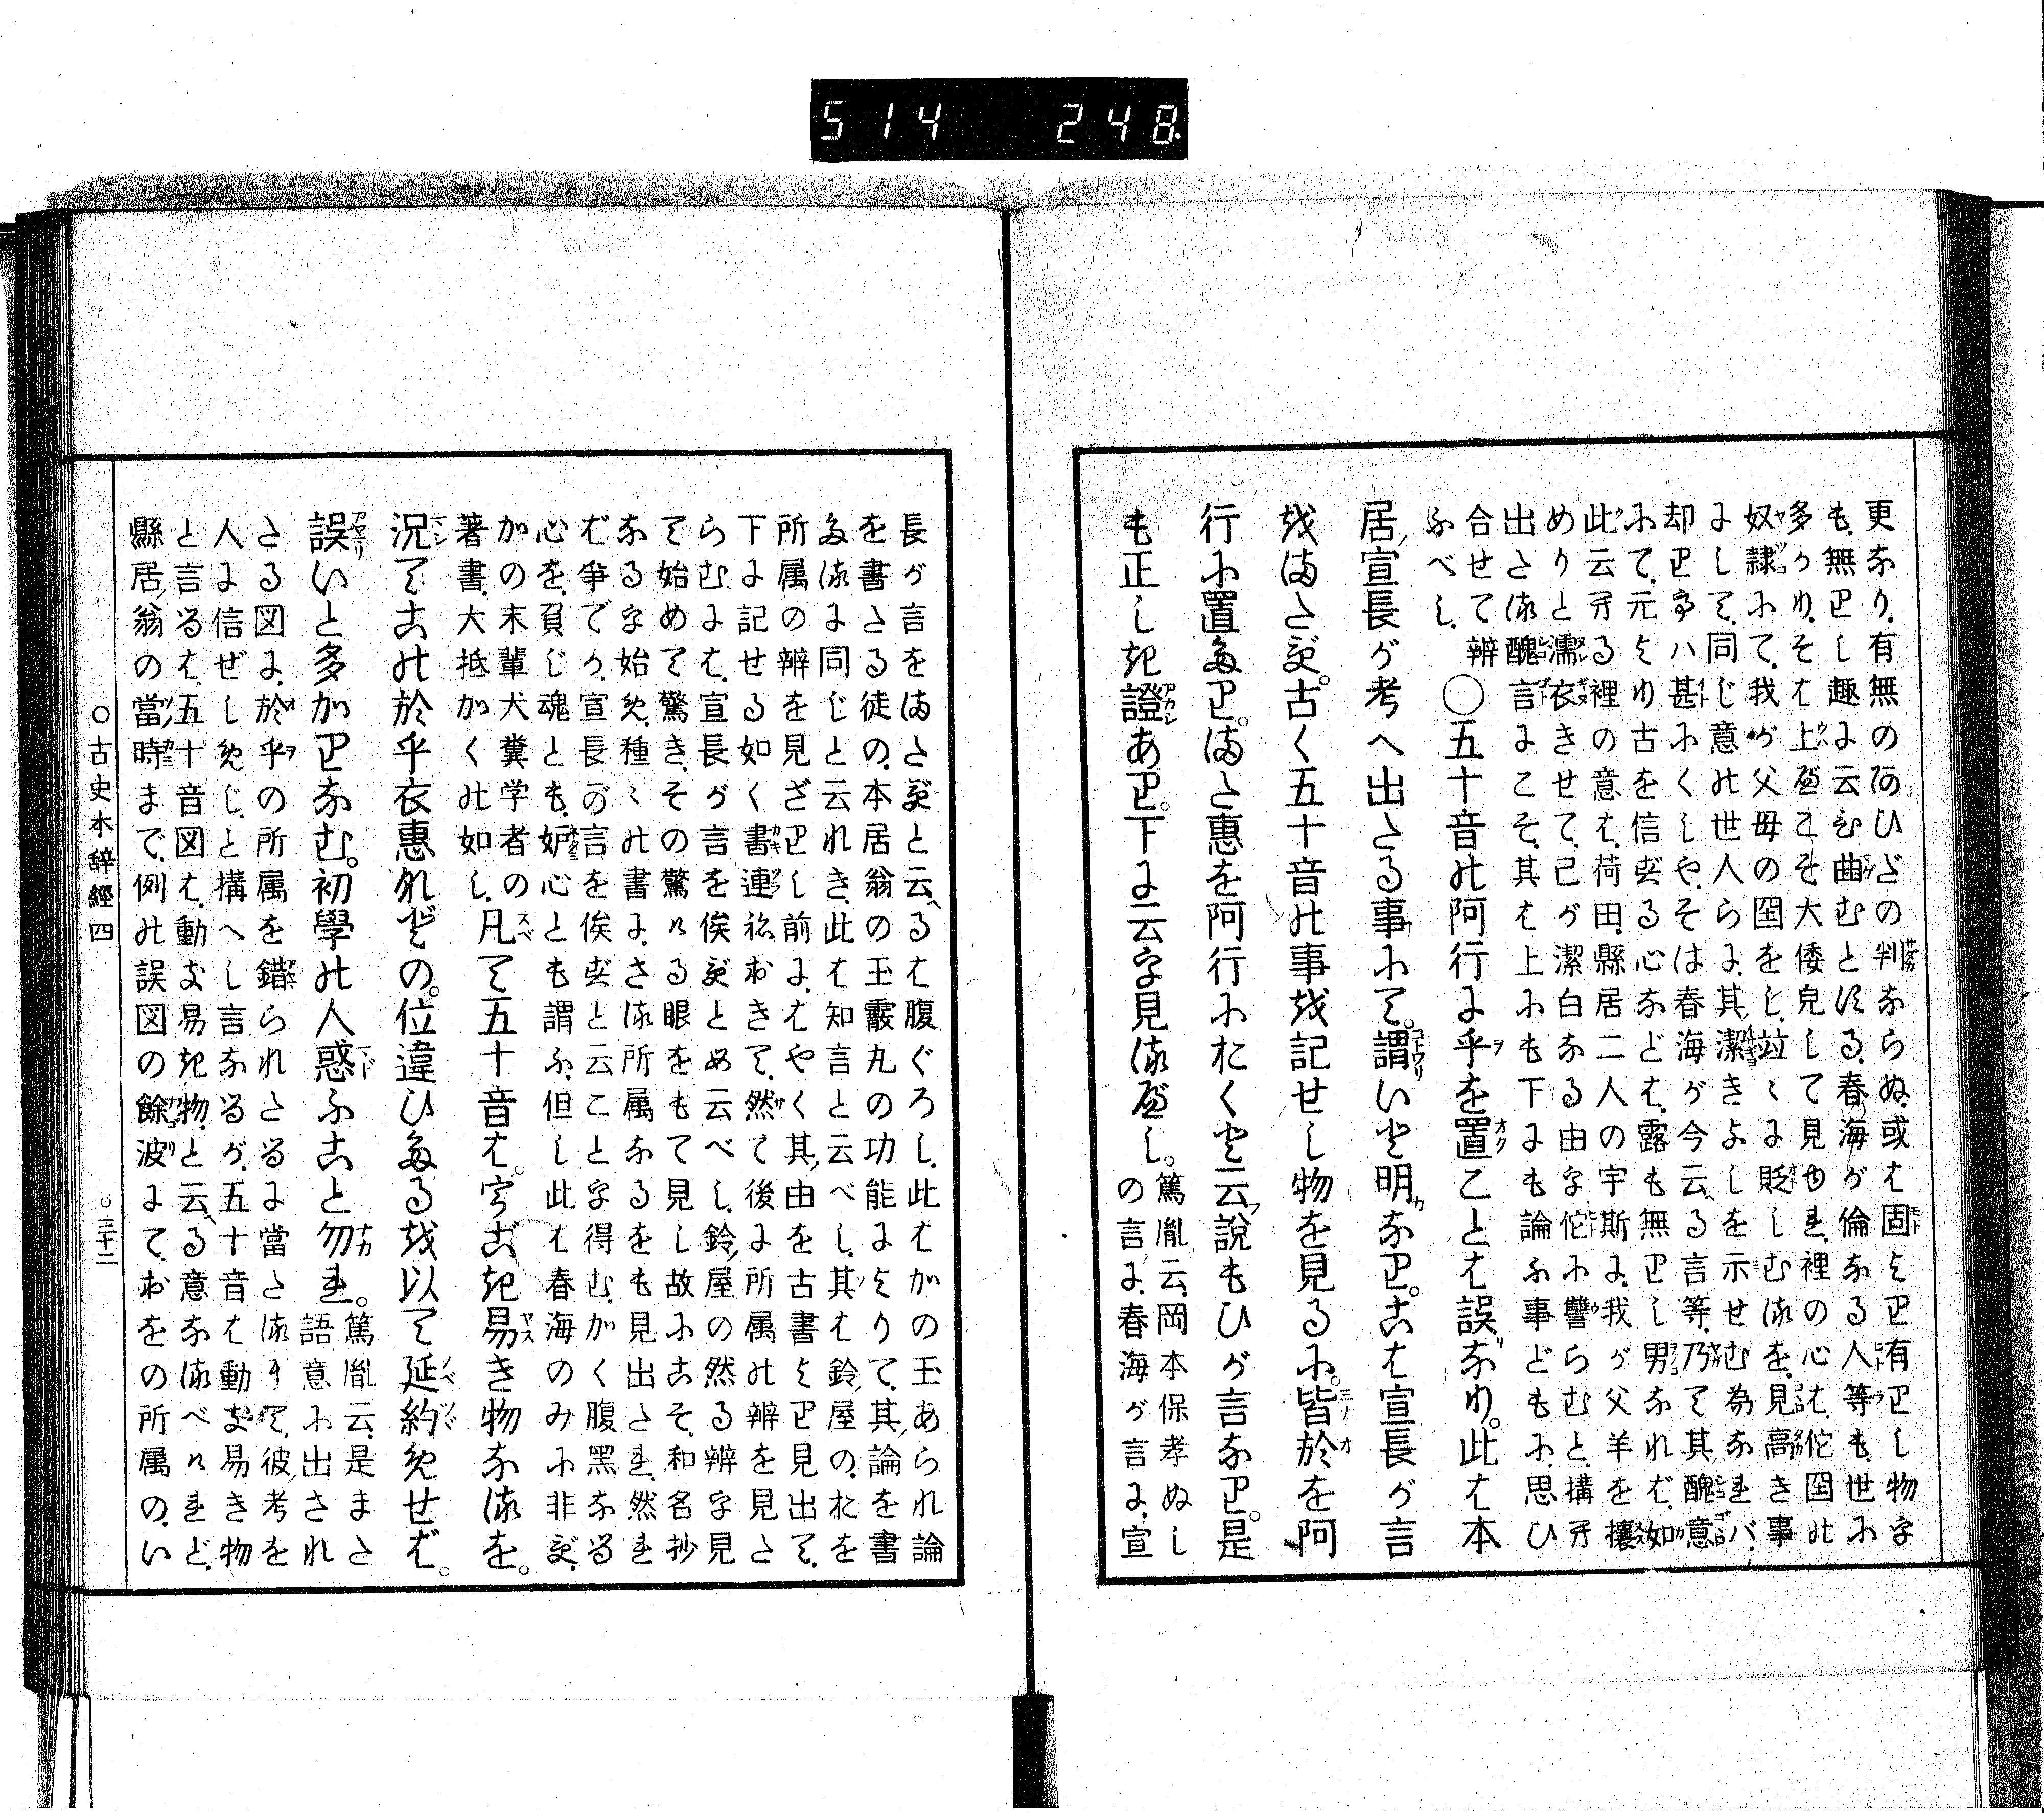 514 248
更なり。有無のあひだの判ならぬ。或は固より有りし物字
も。無りし趣に云ひ曲むとにる。春海が倫なる人等も。世に
多かり。そは上べこそ大倭皃して見ゆれ。裡の心は。佗国の
奴隷にて。我が父母の国をし。竝々に貶しむるを。見高き事
よして。同じ意の世人らに。其潔きよしを示せむ為なれバ。
却りてハ甚にくしや。そは春海が今云へる言等。乃て其醜意
にて。元より古を信ずる心などは。露も無りし男なれば。如
此云する裡の意は。荷田縣居二人の宇斯に。我が父羊を攘
めりと濡衣きせて。己が潔白なる由を佗に讐らむと。構す
出たる醜言にこそ。其は上にも下にも論ふ事どもに。思ひ
合せて辨
ふべし。
○五十音の阿行に乎を置ことは誤なり。此は本
居宣長が考へ出たる事にて。謂いと明なり。こは宣長が言
はまたず。古く五十音の事を記せし物を見るに。皆於を阿
行に置たり。また惠を阿行におくと云説もひが言なり。是
も正しき證あり。下に云を見るべし。
篤胤云。岡本保孝ぬし
の言に。春海が言に。宣
長が言をまたずと云へるは腹ぐろし。此はかの玉あられ論
を書たる徒の。本居翁の玉霰丸の功能によりて。其論を書
たるに同じと云れき。此は知言と云べし。其は鈴屋の。おを
所属の辨を見ざりし前に。はやく其由を古書より見出て。
下に記せる如く書連ねおきて。然て後に所属の辨を見た
らむには。宣長が言を俟ずとめ云べし。鈴屋の然る辨を見
て始めて驚き。その驚ける眼をもて見し故にこそ。和名抄
なるを始め。種々の書に。さる所属なるをも見出たれ。然れ
ば争でか。宣長の言を俟ずと云ことを得む。かく腹黑なる
心を。負じ魂とも。妒心とも謂ふ。但し此は春海のみに非ず。
かの末輩犬糞学者の
著書。大抵かくの如し。
凡て五十音は。字ごき易き物なるを。
況てこの於乎衣惠などの。位違ひたるを以て延約めせば。
誤いと多かりなむ。初學の人惑ふこと勿れ。
篤胤云。是また
語意に出され
たる図に。於乎の所属を錯られたるに當たりて。彼考を
人に信ぜしめじと構へし言なるが。五十音は動き易き物
と言るは。五十音図は。動き易き物と云へる意なるべけれど。
縣居翁の當時まで。例の誤図の餘波にて。おをの所属の。い
○古史本辭經四
○三十二